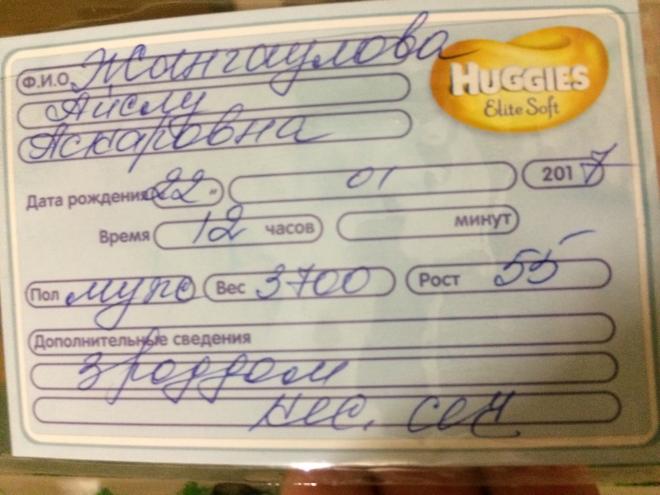 Ф.И.О Жангаулова
HUGGIES
Elite Soft
Айслу
Аскаровна
Дата рождения 22 " 01 2017
Время 12 часов минут
Пол муж Вес 3700 Рост 55
Дополнительные сведения
3 роддом